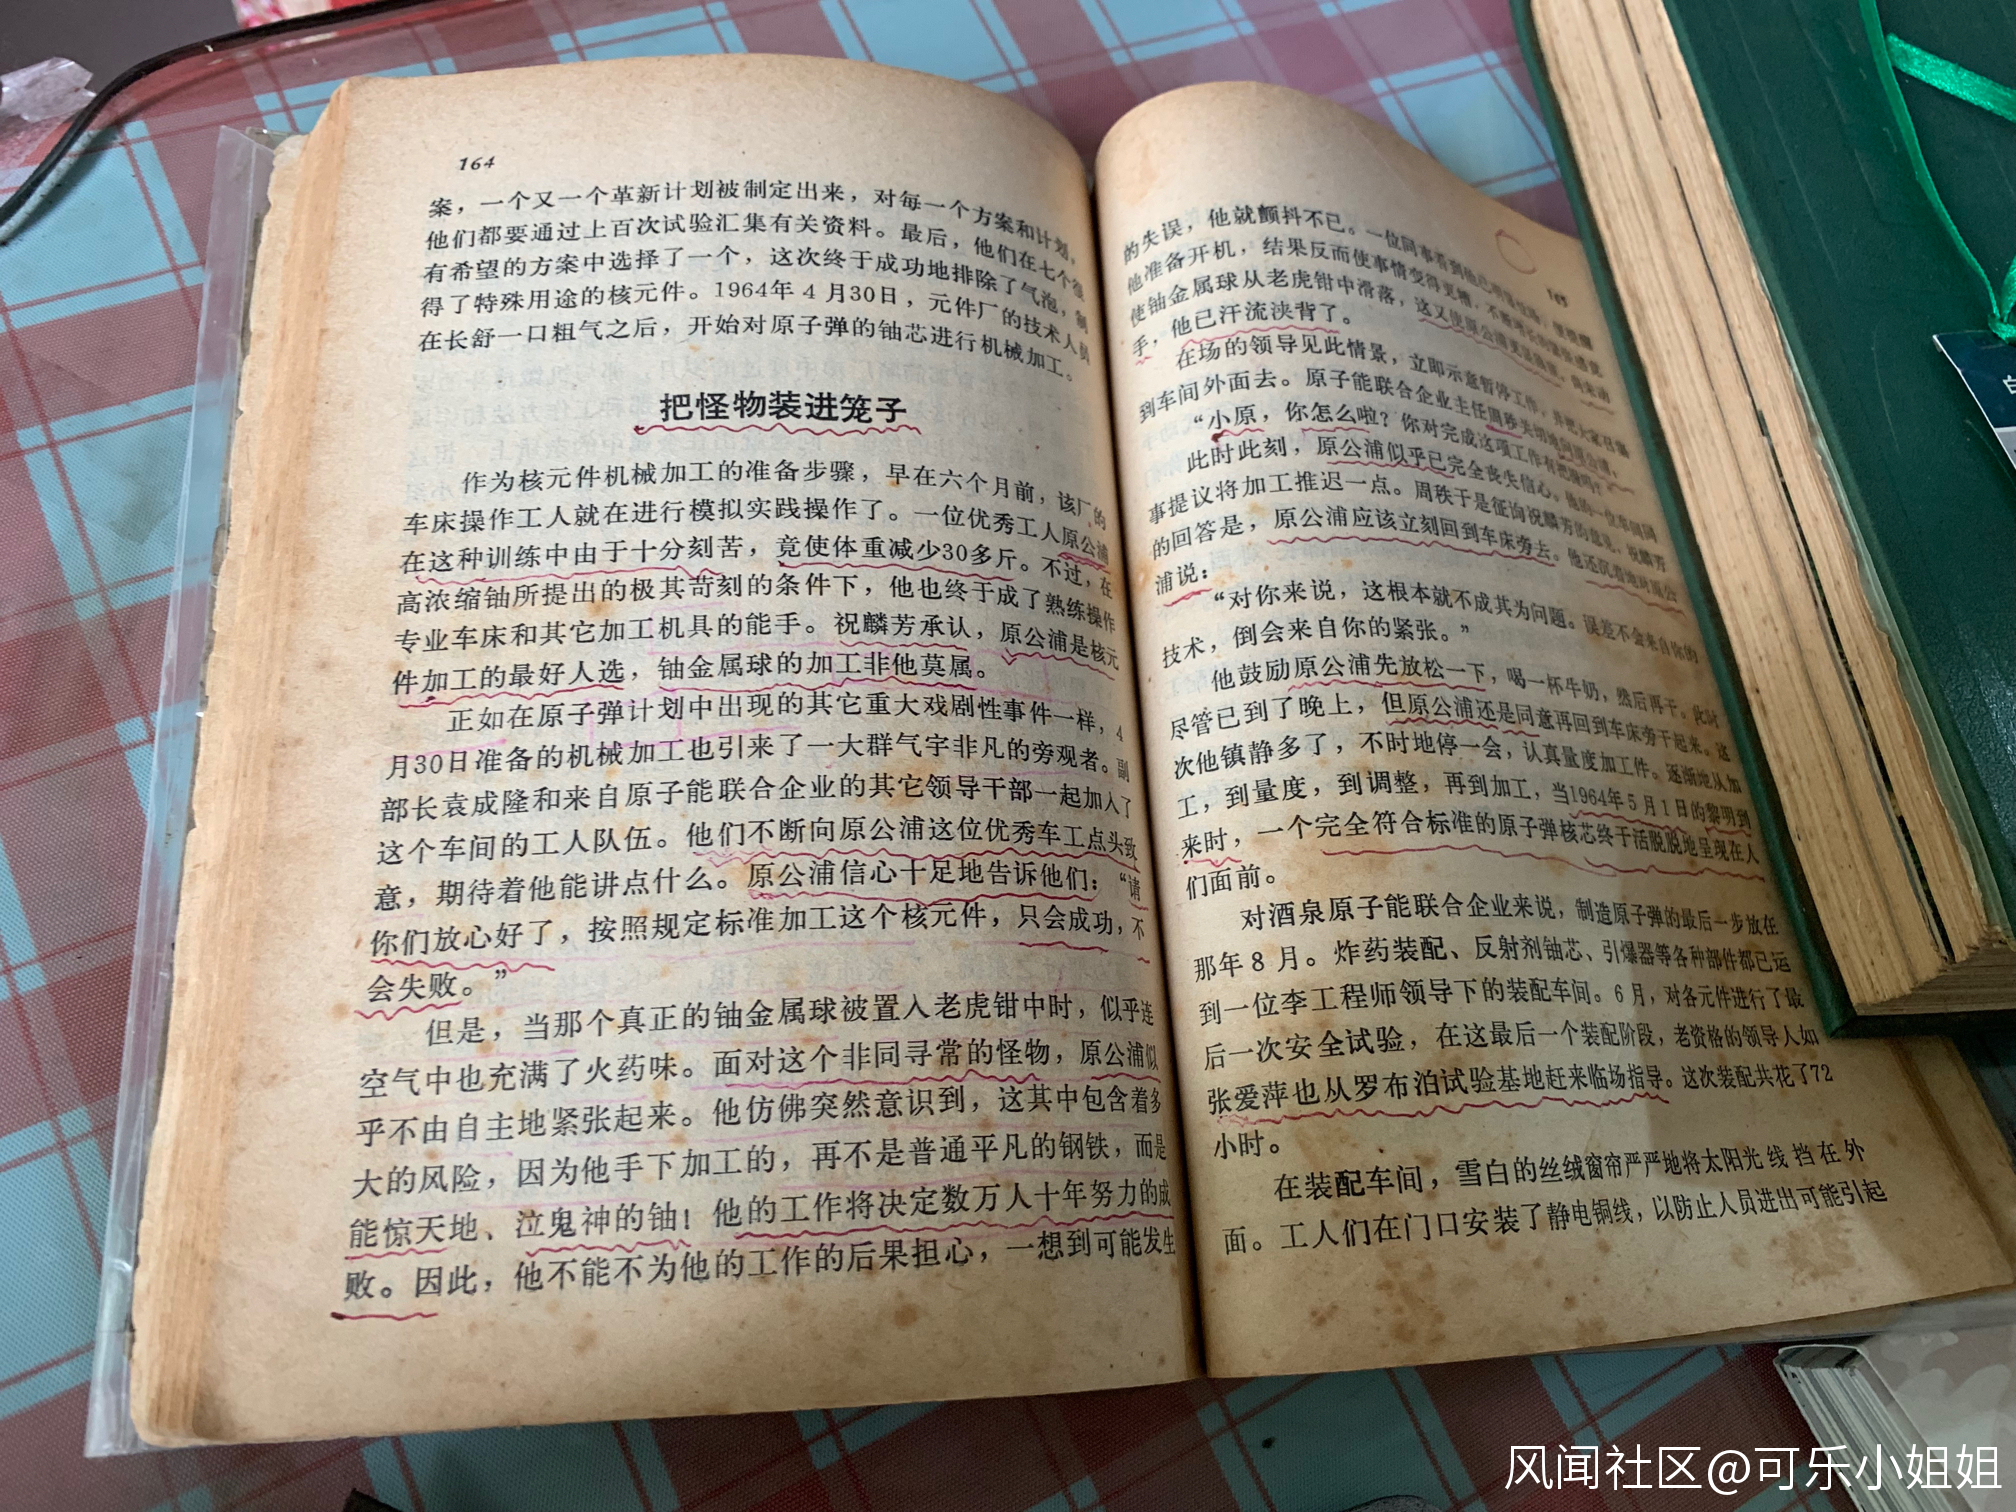 164
案，一个又一个革新计划被制定出来，对每一个方案和计划，
他们都要通过上百次试验汇集有关资料。最后，他们在七个很
有希望的方案中选择了一个，这次终于成功地排除了气泡，制
得了特殊用途的核元件。1964年4月30日，元件厂的技术人员
在长舒一口粗气之后，开始对原子弹的铀芯进行机械加工。
把怪物装进笼子
作为核元件机械加工的准备步骤，早在六个月前，该厂的
车床操作工人就在进行模拟实践操作了。一位优秀工人原公浦
在这种训练中由于十分刻苦，竟使体重减少30多斤。不过，在
高浓缩铀所提出的极其苛刻的条件下，他也终于成了熟练操作
专业车床和其它加工机具的能手。祝麟芳承认，原公浦是核元
件加工的最好人选，铀金属球的加工非他莫属。
正如在原子弹计划中出现的其它重大戏剧性事件一样，4
月30日准备的机械加工也引来了一大群气宇非凡的旁观者。副
部长袁成隆和来自原子能联合企业的其它领导干部一起加入了
这个车间的工人队伍。他们不断向原公浦这位优秀车工点头致
意，期待着他能讲点什么。原公浦信心十足地告诉他们：“请
你们放心好了，按照规定标准加工这个核元件，只会成功，不
会失败。”
但是，当那个真正的铀金属球被置入老虎钳中时，似乎连
空气中也充满了火药味。面对这个非同寻常的怪物，原公浦似
乎不由自主地紧张起来。他仿佛突然意识到，这其中包含着多
大的风险，因为他手下加工的，再不是普通平凡的钢铁，而是
能惊天地、泣鬼神的铀！他的工作将决定数万人十年努力的成
败。因此，他不能不为他的工作的后果担心，一想到可能发生
165
的失误，他就颤抖不已。一位同事看到他已
他准备开机，结果反而使事情变得更糟，不
使铀金属球从老虎钳中滑落，这又使原公浦更
手，他已汗流浃背了。
在场的领导见此情景，立即示意暂停工作，并把大家召集
到车间外面去。原子能联合企业主任周秩关切地问原公浦，
“小原，你怎么啦？你对完成这项工作有把握吗？”
此时此刻，原公浦似乎已完全丧失信心。他的一位车间同
事提议将加工推迟一点。周秩于是征询祝麟芳的意见，祝麟芳
的回答是，原公浦应该立刻回到车床旁去。他还沉着地对原公
浦说：
“对你来说，这根本就不成其为问题。误差不会来自你的
技术，倒会来自你的紧张。”
他鼓励原公浦先放松一下，喝一杯牛奶，然后再干。此时
尽管已到了晚上，但原公浦还是同意再回到车床旁干起来。这
次他镇静多了，不时地停一会，认真量度加工件。逐渐地从加
工，到量度，到调整，再到加工，当1964年5月1日的黎明到
来时，一个完全符合标准的原子弹核芯终于活脱脱地呈现在人
们面前。
对酒泉原子能联合企业来说，制造原子弹的最后一步放在
那年8月。炸药装配、反射剂铀芯、引爆器等各种部件都已运
到一位李工程师领导下的装配车间。6月，对各元件进行了最
后一次安全试验，在这最后一个装配阶段，老资格的领导人如
张爱萍也从罗布泊试验基地赶来临场指导。这次装配共花了72
小时。
在装配车间，雪白的丝绒窗帘严严地将太阳光线挡在外
面。工人们在门口安装了静电铜线，以防止人员进出可能引起
风闻社区@可乐小姐姐